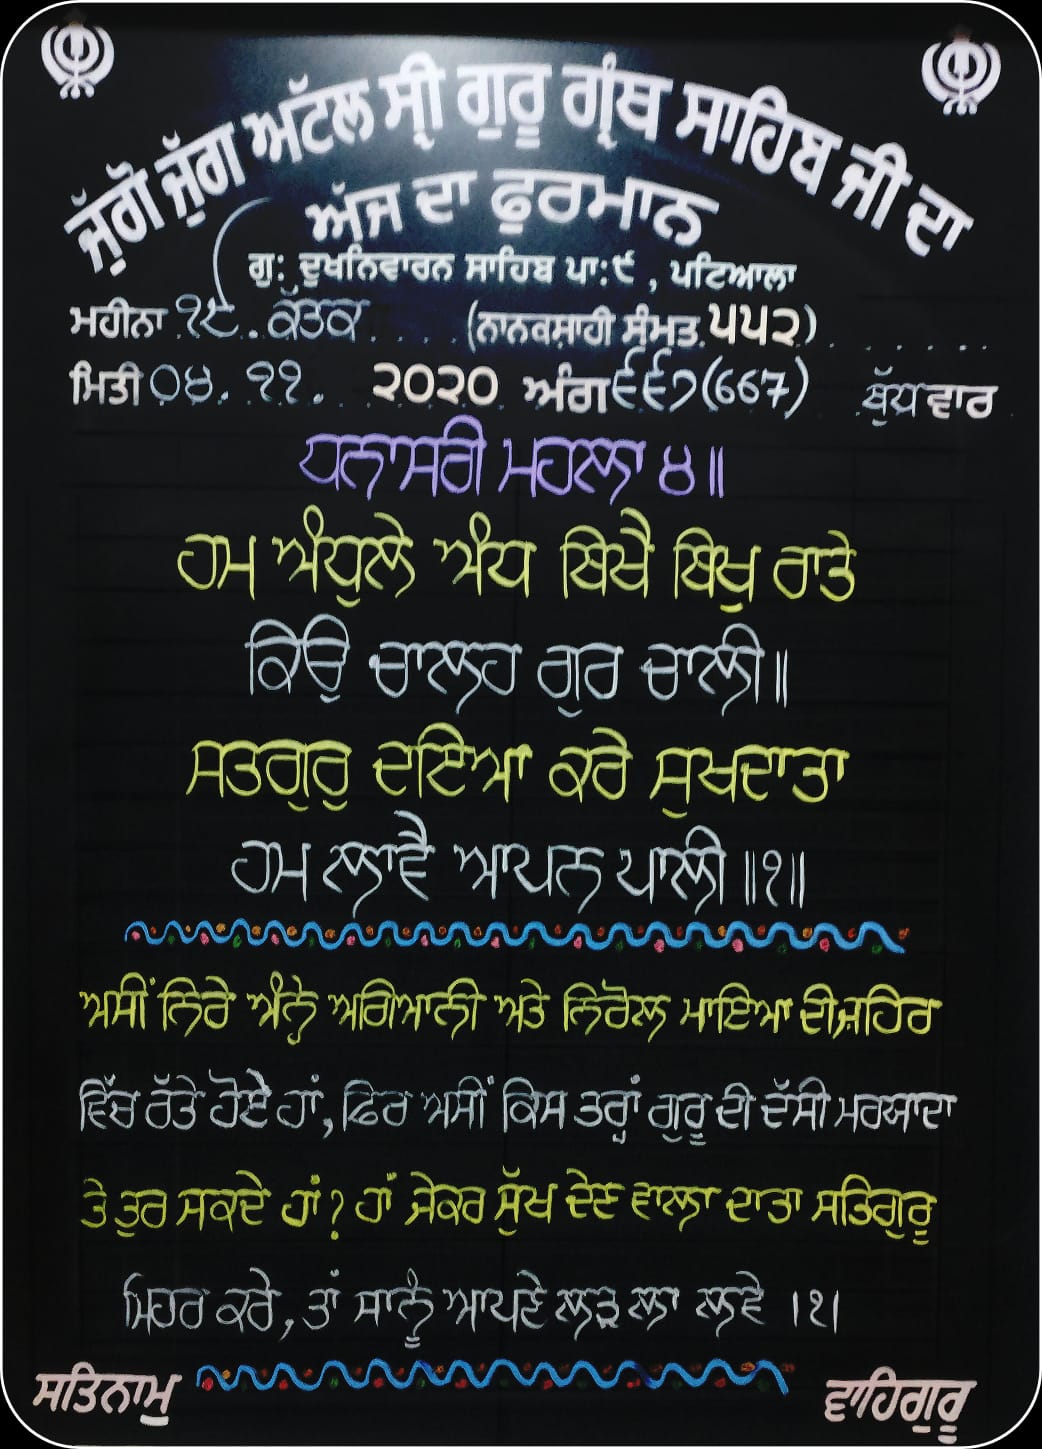 ਜੁੱਗੋ ਜੁੱਗ ਅਟੱਲ ਸ੍ਰੀ ਗੁਰੂ ਗ੍ਰੰਥ ਸਾਹਿਬ ਜੀ ਦਾ
ਅੱਜ ਦਾ ਫੁਰਮਾਨ
ਗੁ: ਦੁਖਨਿਵਾਰਨ ਸਾਹਿਬ ਪਾ:੯, ਪਟਿਆਲਾ
ਮਹੀਨਾ ੧੯. ਕੱਤਕ (ਨਾਨਕਸ਼ਾਹੀ ਸੰਮਤ ੫੫੨)
ਮਿਤੀ ੦੪. ੧੧. ੨੦੨੦ ਅੰਗ ੬੬੭(667) ਬੁੱਧਵਾਰ
ਧਨਾਸਰੀ ਮਹਲਾ ੪॥
ਹਮ ਅੰਧੁਲੇ ਅੰਧ ਬਿਖੈ ਬਿਖੁ ਰਾਤੇ
ਕਿਉ ਚਾਲਹ ਗੁਰ ਚਾਲੀ॥
ਸਤਗੁਰੁ ਦਇਆ ਕਰੇ ਸੁਖਦਾਤਾ
ਹਮ ਲਾਵੈ ਆਪਨ ਪਾਲੀ॥੧॥
ਅਸੀਂ ਨਿਰੇ ਅੰਨ੍ਹੇ ਅਗਿਆਨੀ ਅਤੇ ਨਿਰੋਲ ਮਾਇਆ ਦੀ ਜ਼ਹਿਰ
ਵਿੱਚ ਰੱਤੇ ਹੋਏ ਹਾਂ, ਫਿਰ ਅਸੀਂ ਕਿਸ ਤਰ੍ਹਾਂ ਗੁਰੂ ਦੀ ਦੱਸੀ ਮਰਯਾਦਾ
ਤੇ ਤੁਰ ਸਕਦੇ ਹਾਂ? ਹਾਂ ਜੇਕਰ ਸੁੱਖ ਦੇਣ ਵਾਲਾ ਦਾਤਾ ਸਤਿਗੁਰੂ
ਮਿਹਰ ਕਰੇ, ਤਾਂ ਸਾਨੂੰ ਆਪਣੇ ਲੜ ਲਾ ਲਵੇ ।੧।
ਸਤਿਨਾਮੁ
ਵਾਹਿਗੁਰੂ